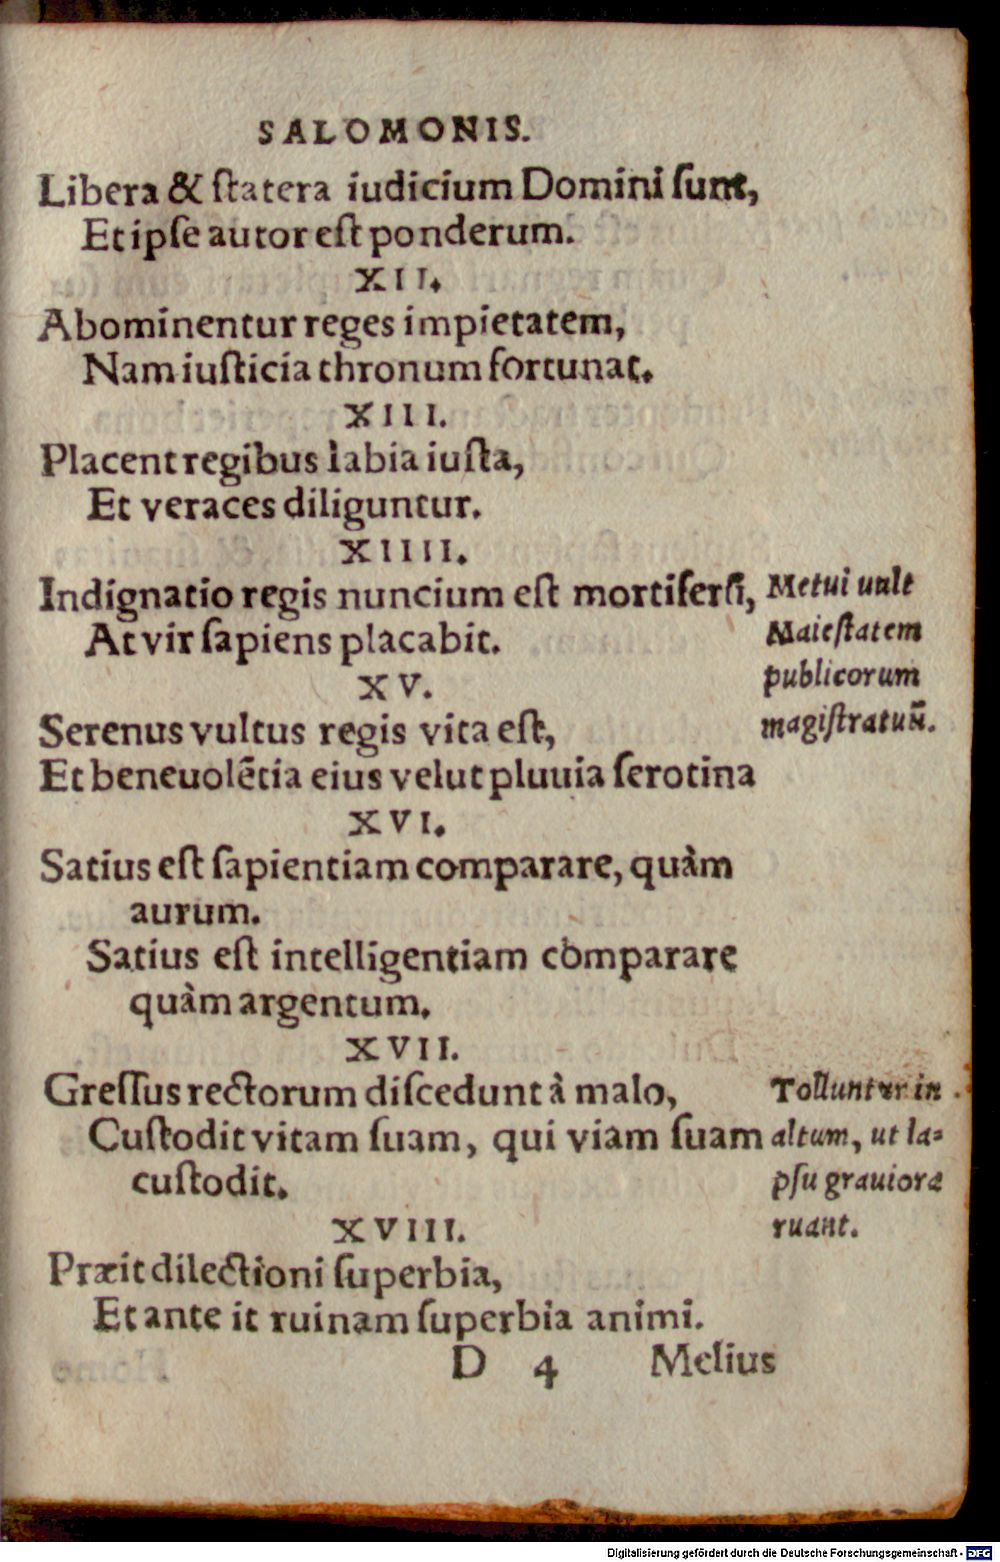 SALOMONIS.
Libera & ſtatera iudicium Domini ſunt,
Et ipſe autor eſt ponderum.
XII.
Abominentur reges impietatem,
Nam iuſticia thronum fortunat.
XIII.
Placent regibus labia iuſta,
Et veraces diliguntur.
XIIII.
Indignatio regis nuncium eſt mortiferũ,
At vir ſapiens placabit.
Metui uult
Maieſtatem
publicorum
magiſtratuũ.
XV.
Serenus vultus regis vita eſt,
Et beneuolẽtia eius velut pluuia ſerotina
XVI.
Satius eſt ſapientiam comparare, quàm
aurum.
Satius eſt intelligentiam comparare
quàm argentum.
XVII.
Greſſus rectorum diſcedunt à malo,
Cuſtodit vitam ſuam, qui viam ſuam
cuſtodit.
Tolluntur in
altum, ut la=
pſu grauiore
ruant.
XVIII.
Præit dilectioni ſuperbia,
Et ante it ruinam ſuperbia animi.
D 4 Melius
Digitalisierung gefördert durch die Deutsche Forschungsgemeinschaft - DFG